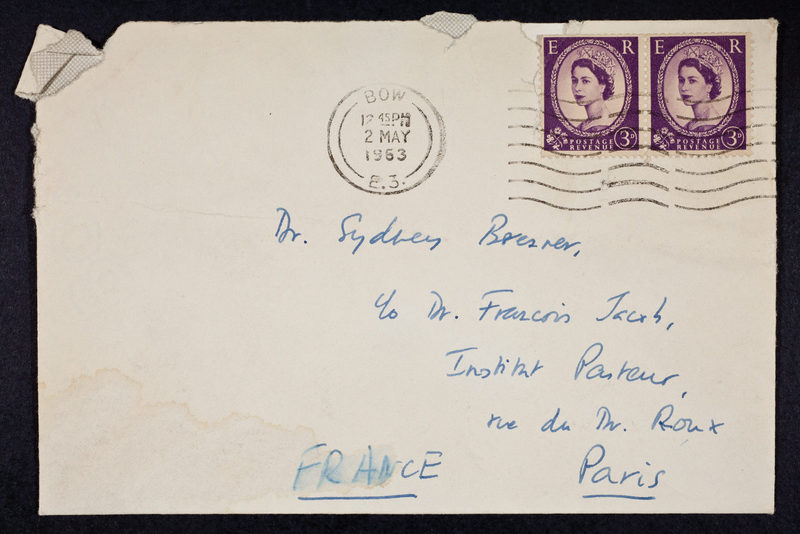 E R
3D
POSTAGE
REVENUE
E R
3D
POSTAGE
REVENUE
BOW
12 45PM
2 MAY
1963
E.3.
Dr. Sydney Brenner,
c/o Dr. Francois Jacob,
Institut Pasteur,
rue du Dr. Roux
FRANCE Paris